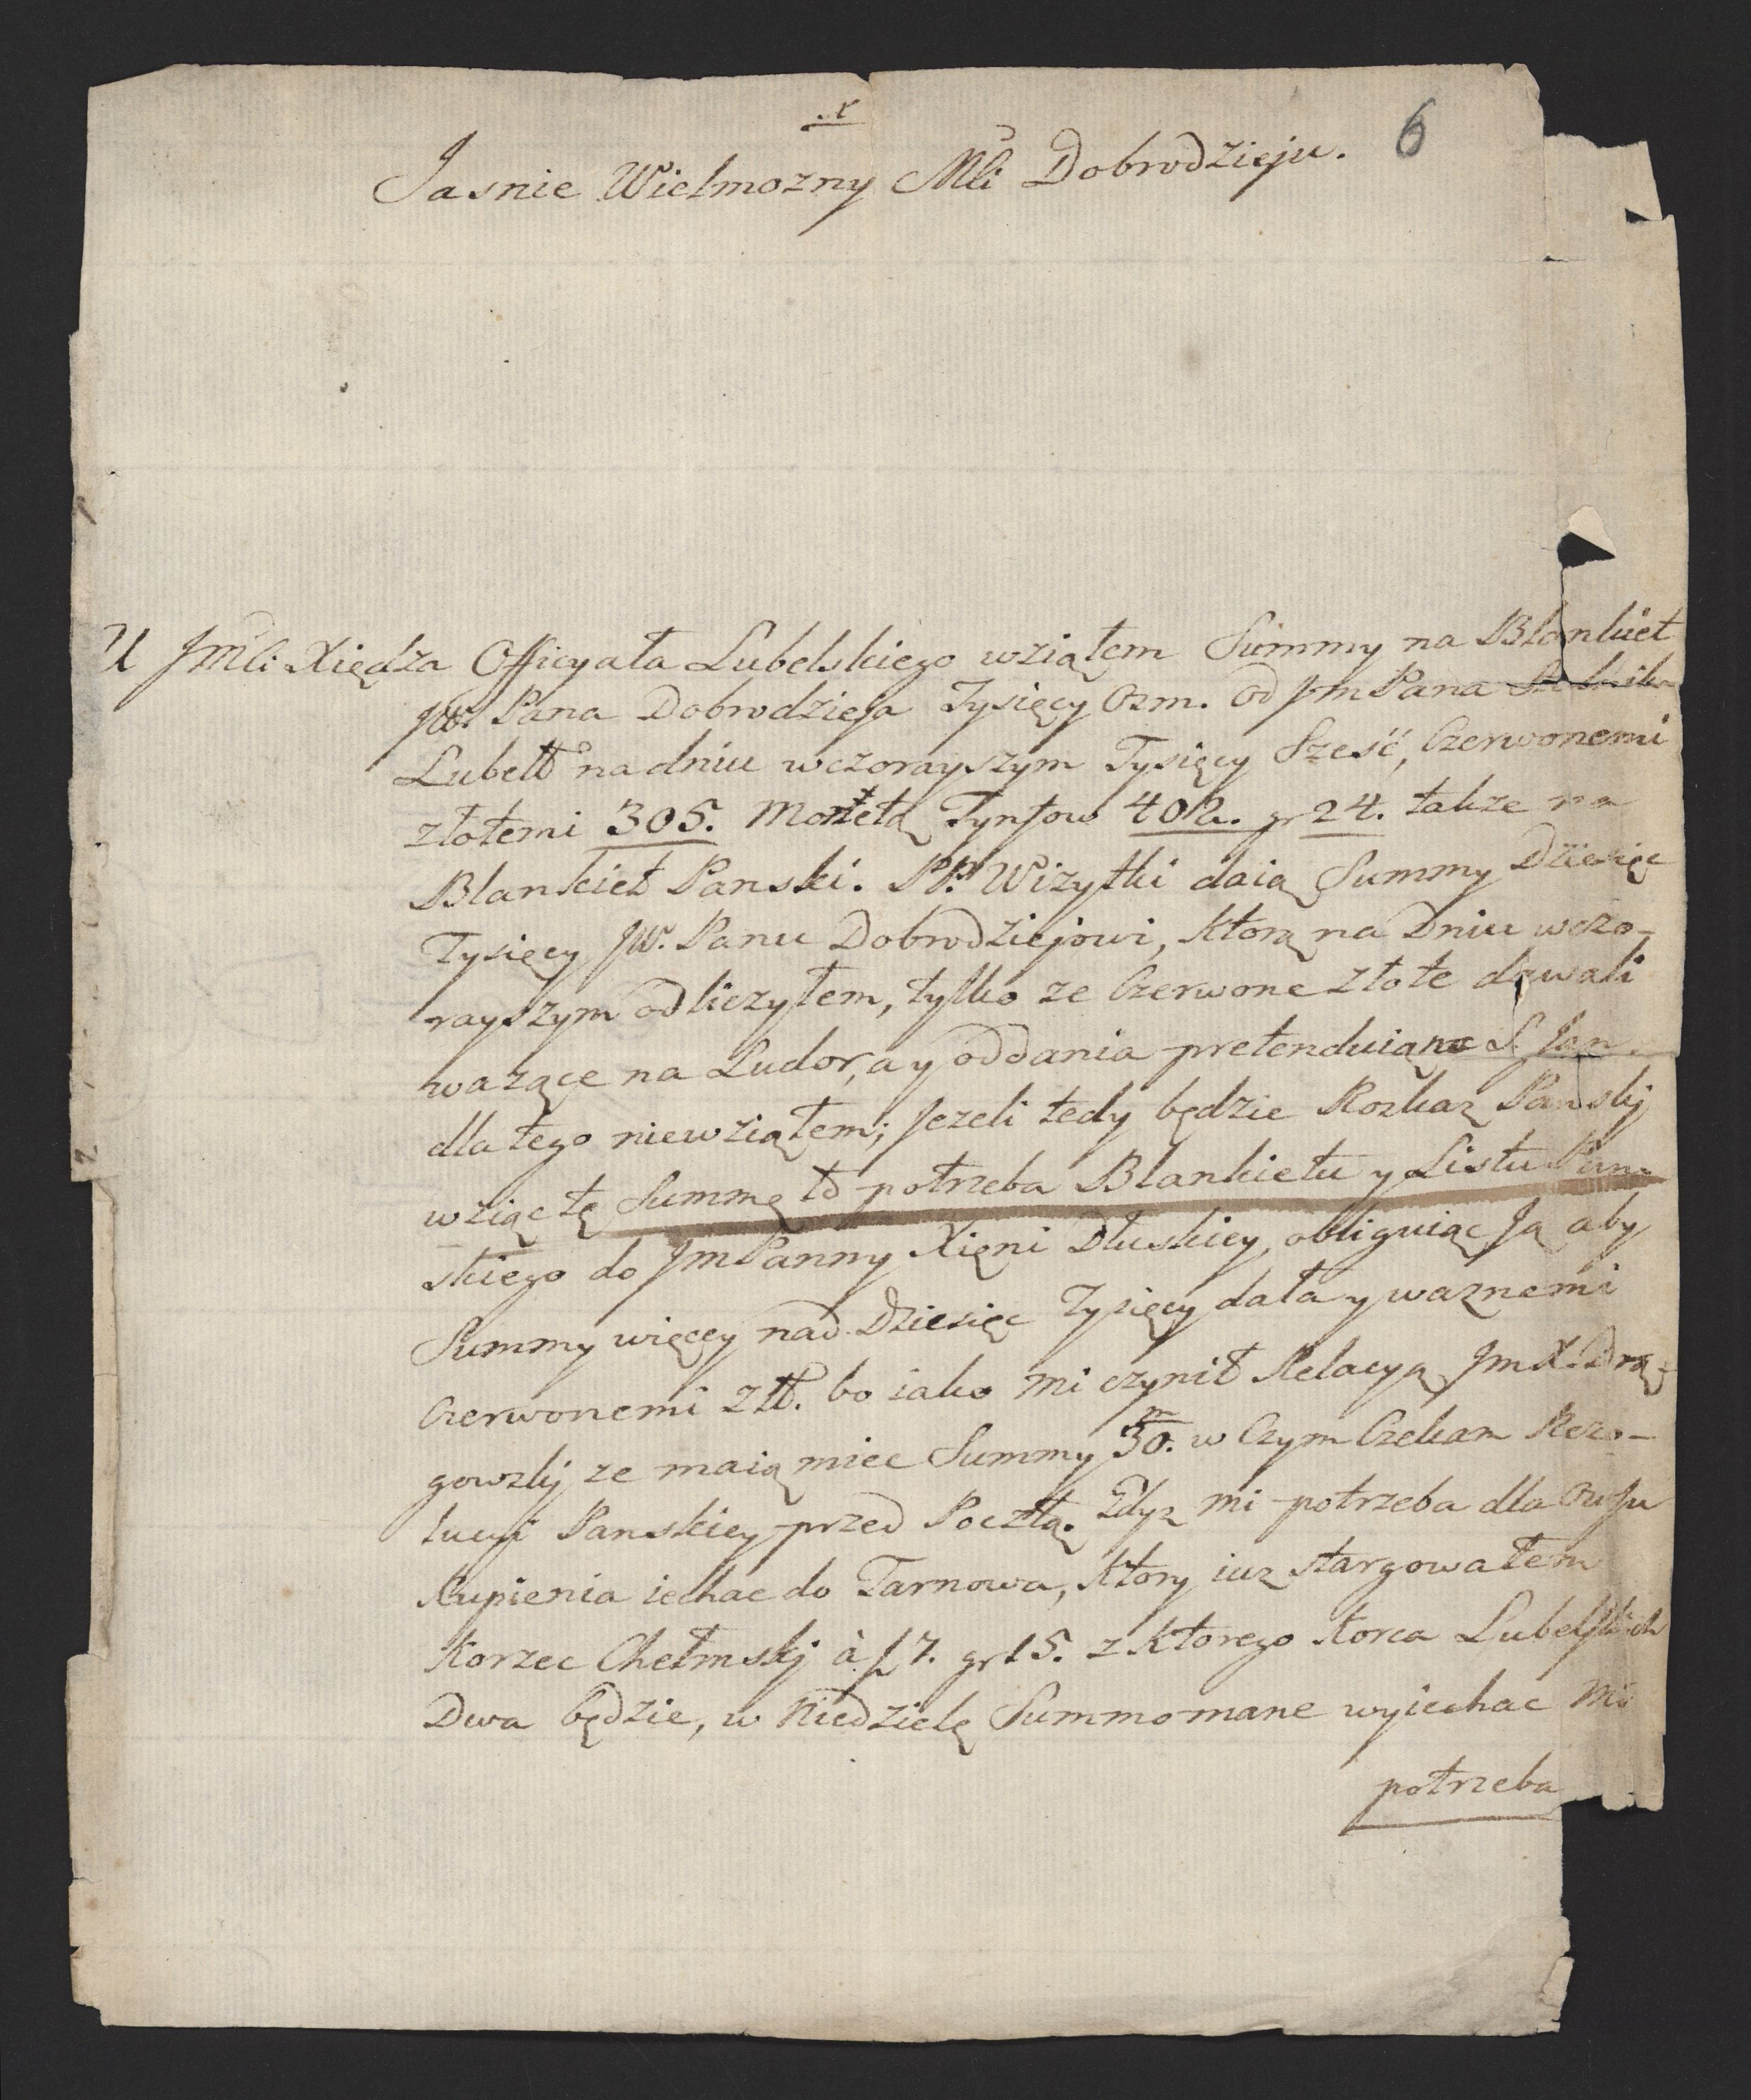 6
Jasnie Wielmozny Mći Dobrodzieju.
U JMći Xiędza Officyała Lubelskiego wziąłem Summy na Blankiet
JW. Pana Dobrodzieja Tysięcy Ozm. Od Jm Pana
Lubell na dniu wczorayszym Tysięcy Sześć, Czerwonemi
złotemi 305. Monetą Tynfow 402. gr 24. takze na
Blankiet Panski. PP. Wizytki daią Summy Dziesięc
Tysięcy JW. Panu Dobrodziejowi, ktorą na Dniu wczo-
rayszym odliczyłem, tylko ze Czerwone złote dawali
wazące na Ludor, a y oddania pretenduią na S. Jan.
dla tego niewziąłem; Jezeli tedy będzie Rozkaz Panskj
wziąc tę Summę to potrzeba Blankietu y Listu Pan-
skiego do Jm Panny Xięni Dłuskiey, obliguiąc Ją aby
Summy więcey nad Dziesięc Tysięcy dała y waznemi
Czerwonemi Złł. bo iako mi czynił Relacyą Jm X. Drą-
gowskj ze maią miec Summy 30. w Czym Czekam Rezo-
lucyi Panskiey przed Pocztą. Gdyz mi potrzeba dla Owsu
Kupienia iechac do Tarnowa, ktory iuz stargowałem
Korzec Chełmskj à f 7. gr 15. z ktorego Korca Lubelskich
Dwa będzie, w Niedzielę Summo mane wyiechac mi
potrzeba